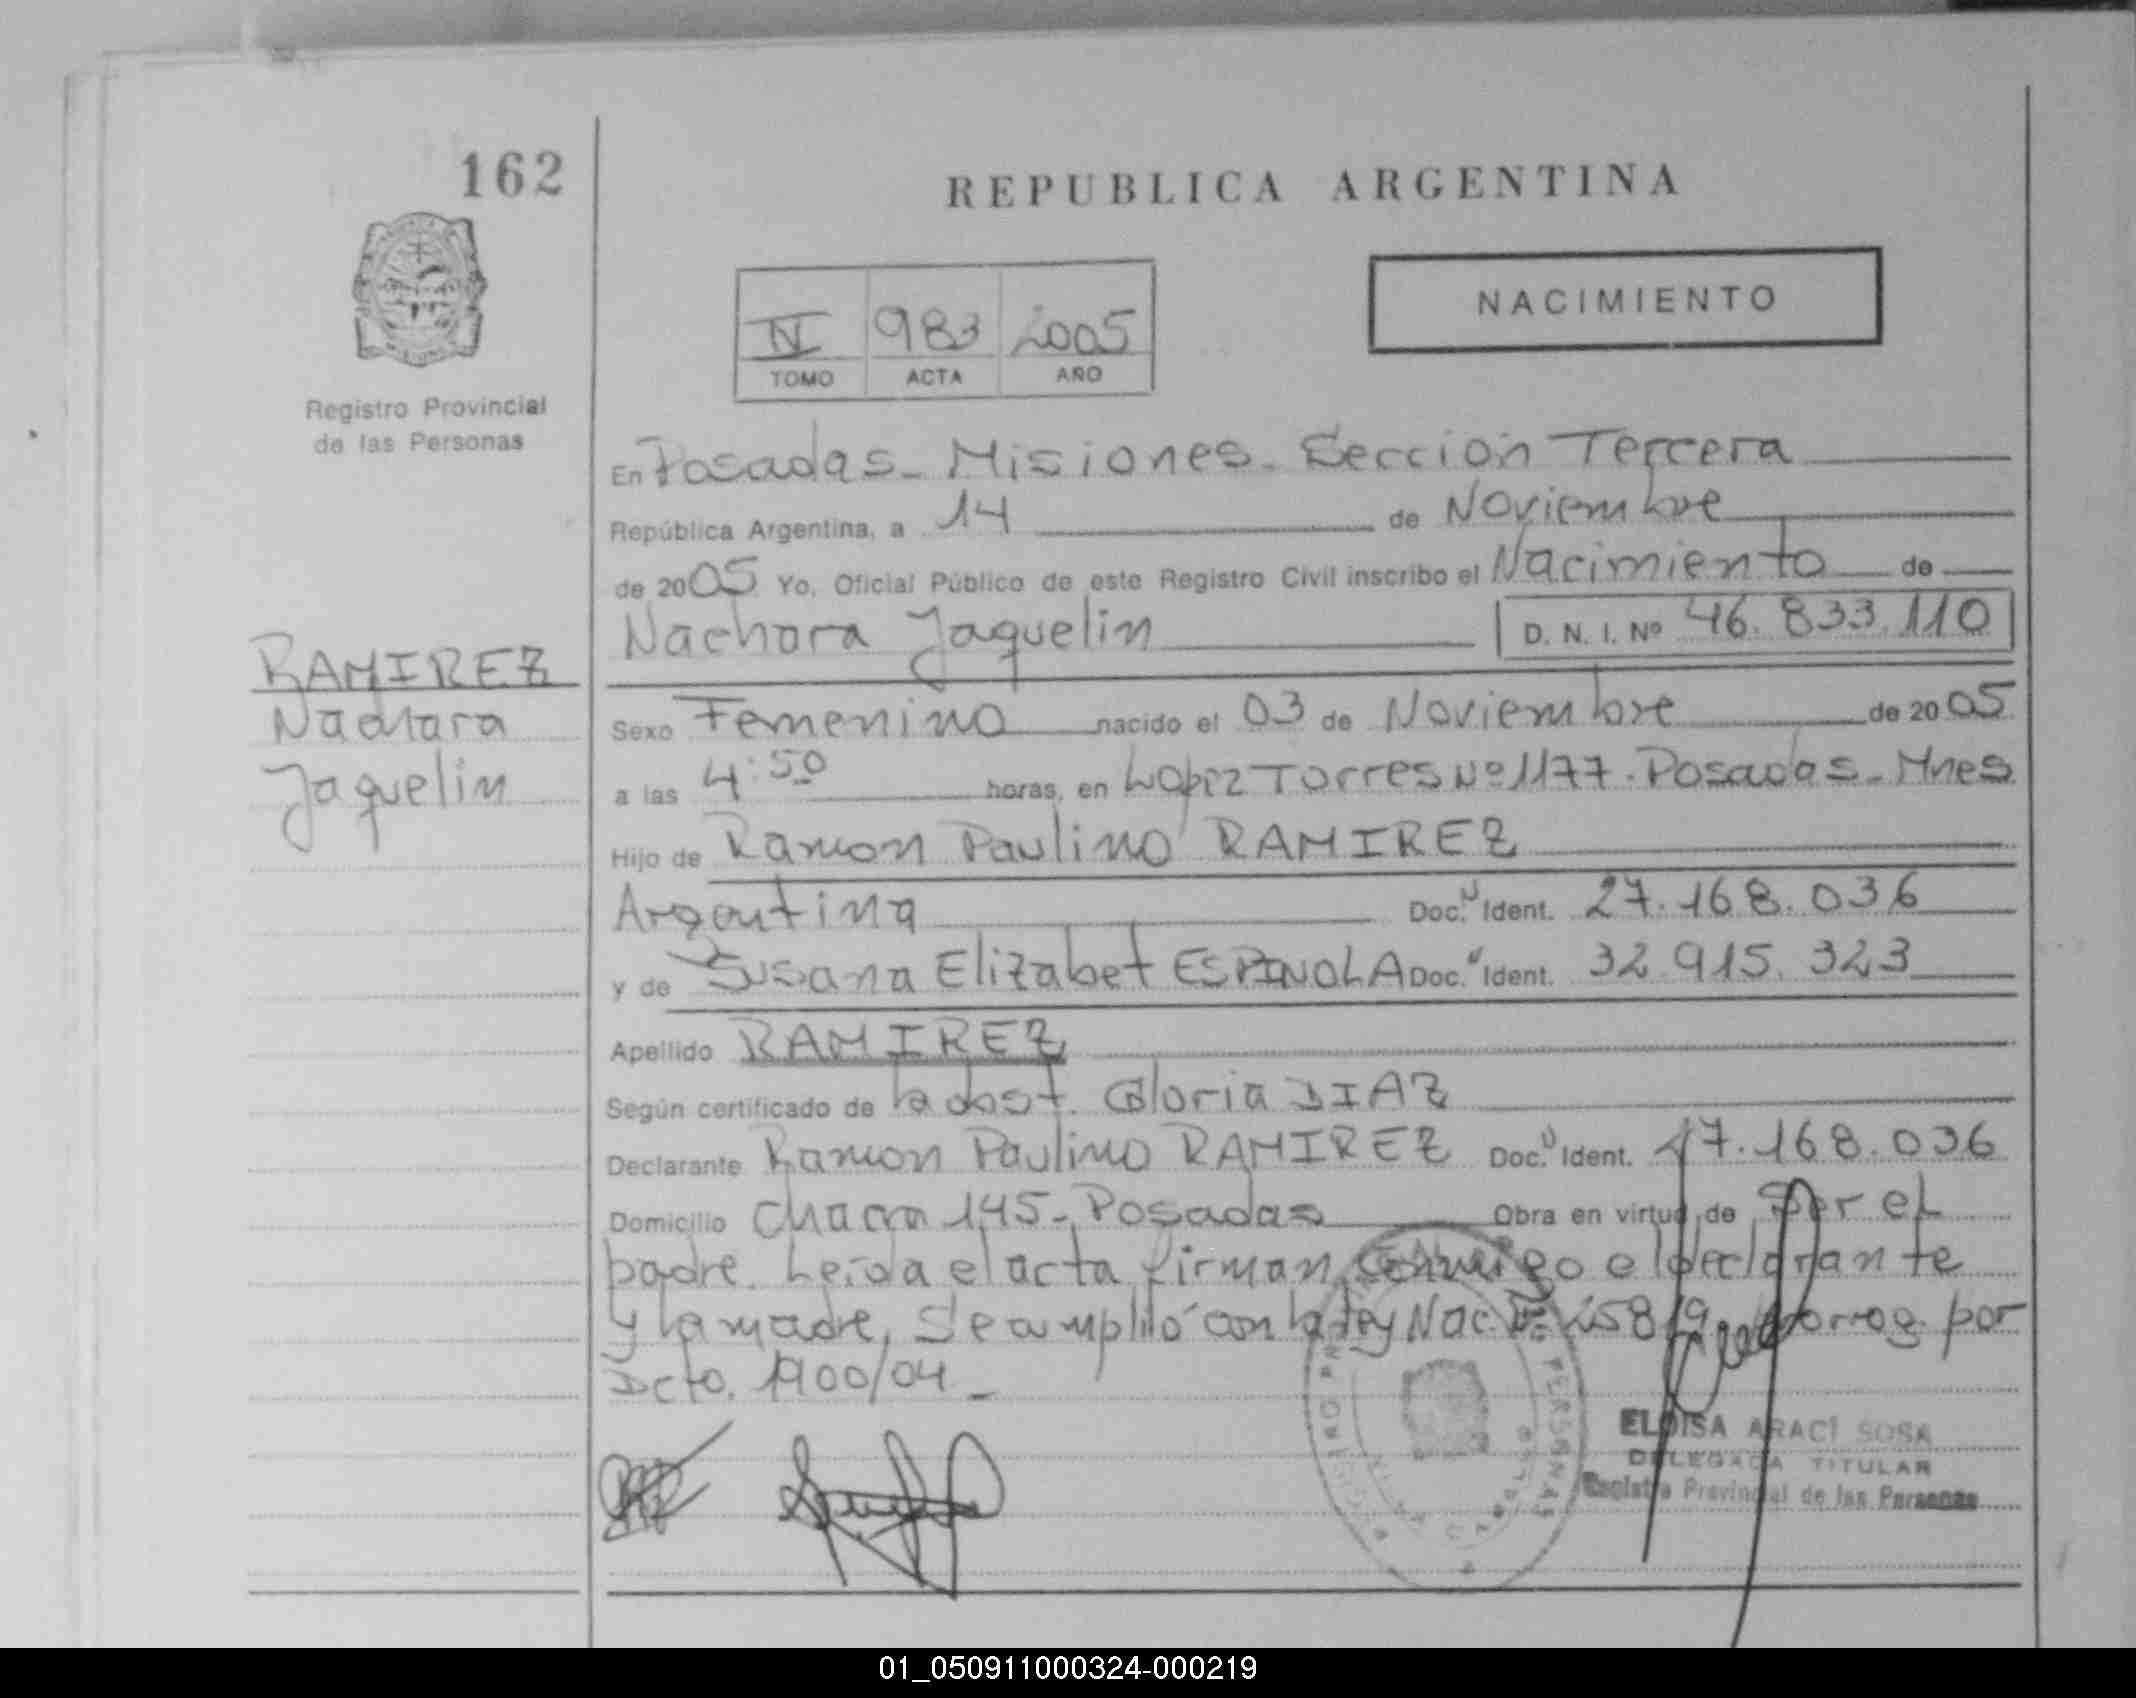 162
REPUBLICA ARGENTINA
NACIMIENTO
983 2005
TOMO ACTA AÑO
Registro Provincial
de las Personas
En Posadas - Misiones - Sección Tercera
República Argentina, a 14 de Noviembre
de 2005 Yo, Oficial Público de este Registro Civil inscribo el Nacimiento de
Nachara Jaquelin D. N. I. Nº 46.833.110
RAMIREZ
Nachara
Jaquelin
Sexo Femenino nacido el 03 de Noviembre de 2005
a las 4:50 horas, en Lopez Torres Nº 1177. Posadas - Mnes
Hijo de Ramon Paulino RAMIREZ
Argentina Doc. Ident. 27.168.036
y de Susana Elizabet ESPINOLA Doc. Ident. 32.915.323
Apellido RAMIREZ
Según certificado de la obst. Gloria DIAZ
Declarante Ramon Paulino RAMIREZ Doc. Ident. 27.168.036
Domicilio Chacra 145 - Posadas Obra en virtud de Ser el
padre. Leida el acta firman conmigo el declarante
y la madre. Se cumplió con la Ley Nac. por
Dcto. 1900/04 -
ELOISA ARACI SOSA
DELEGADA TITULAR
Registro Provincial de las Personas
01_050911000324-000219